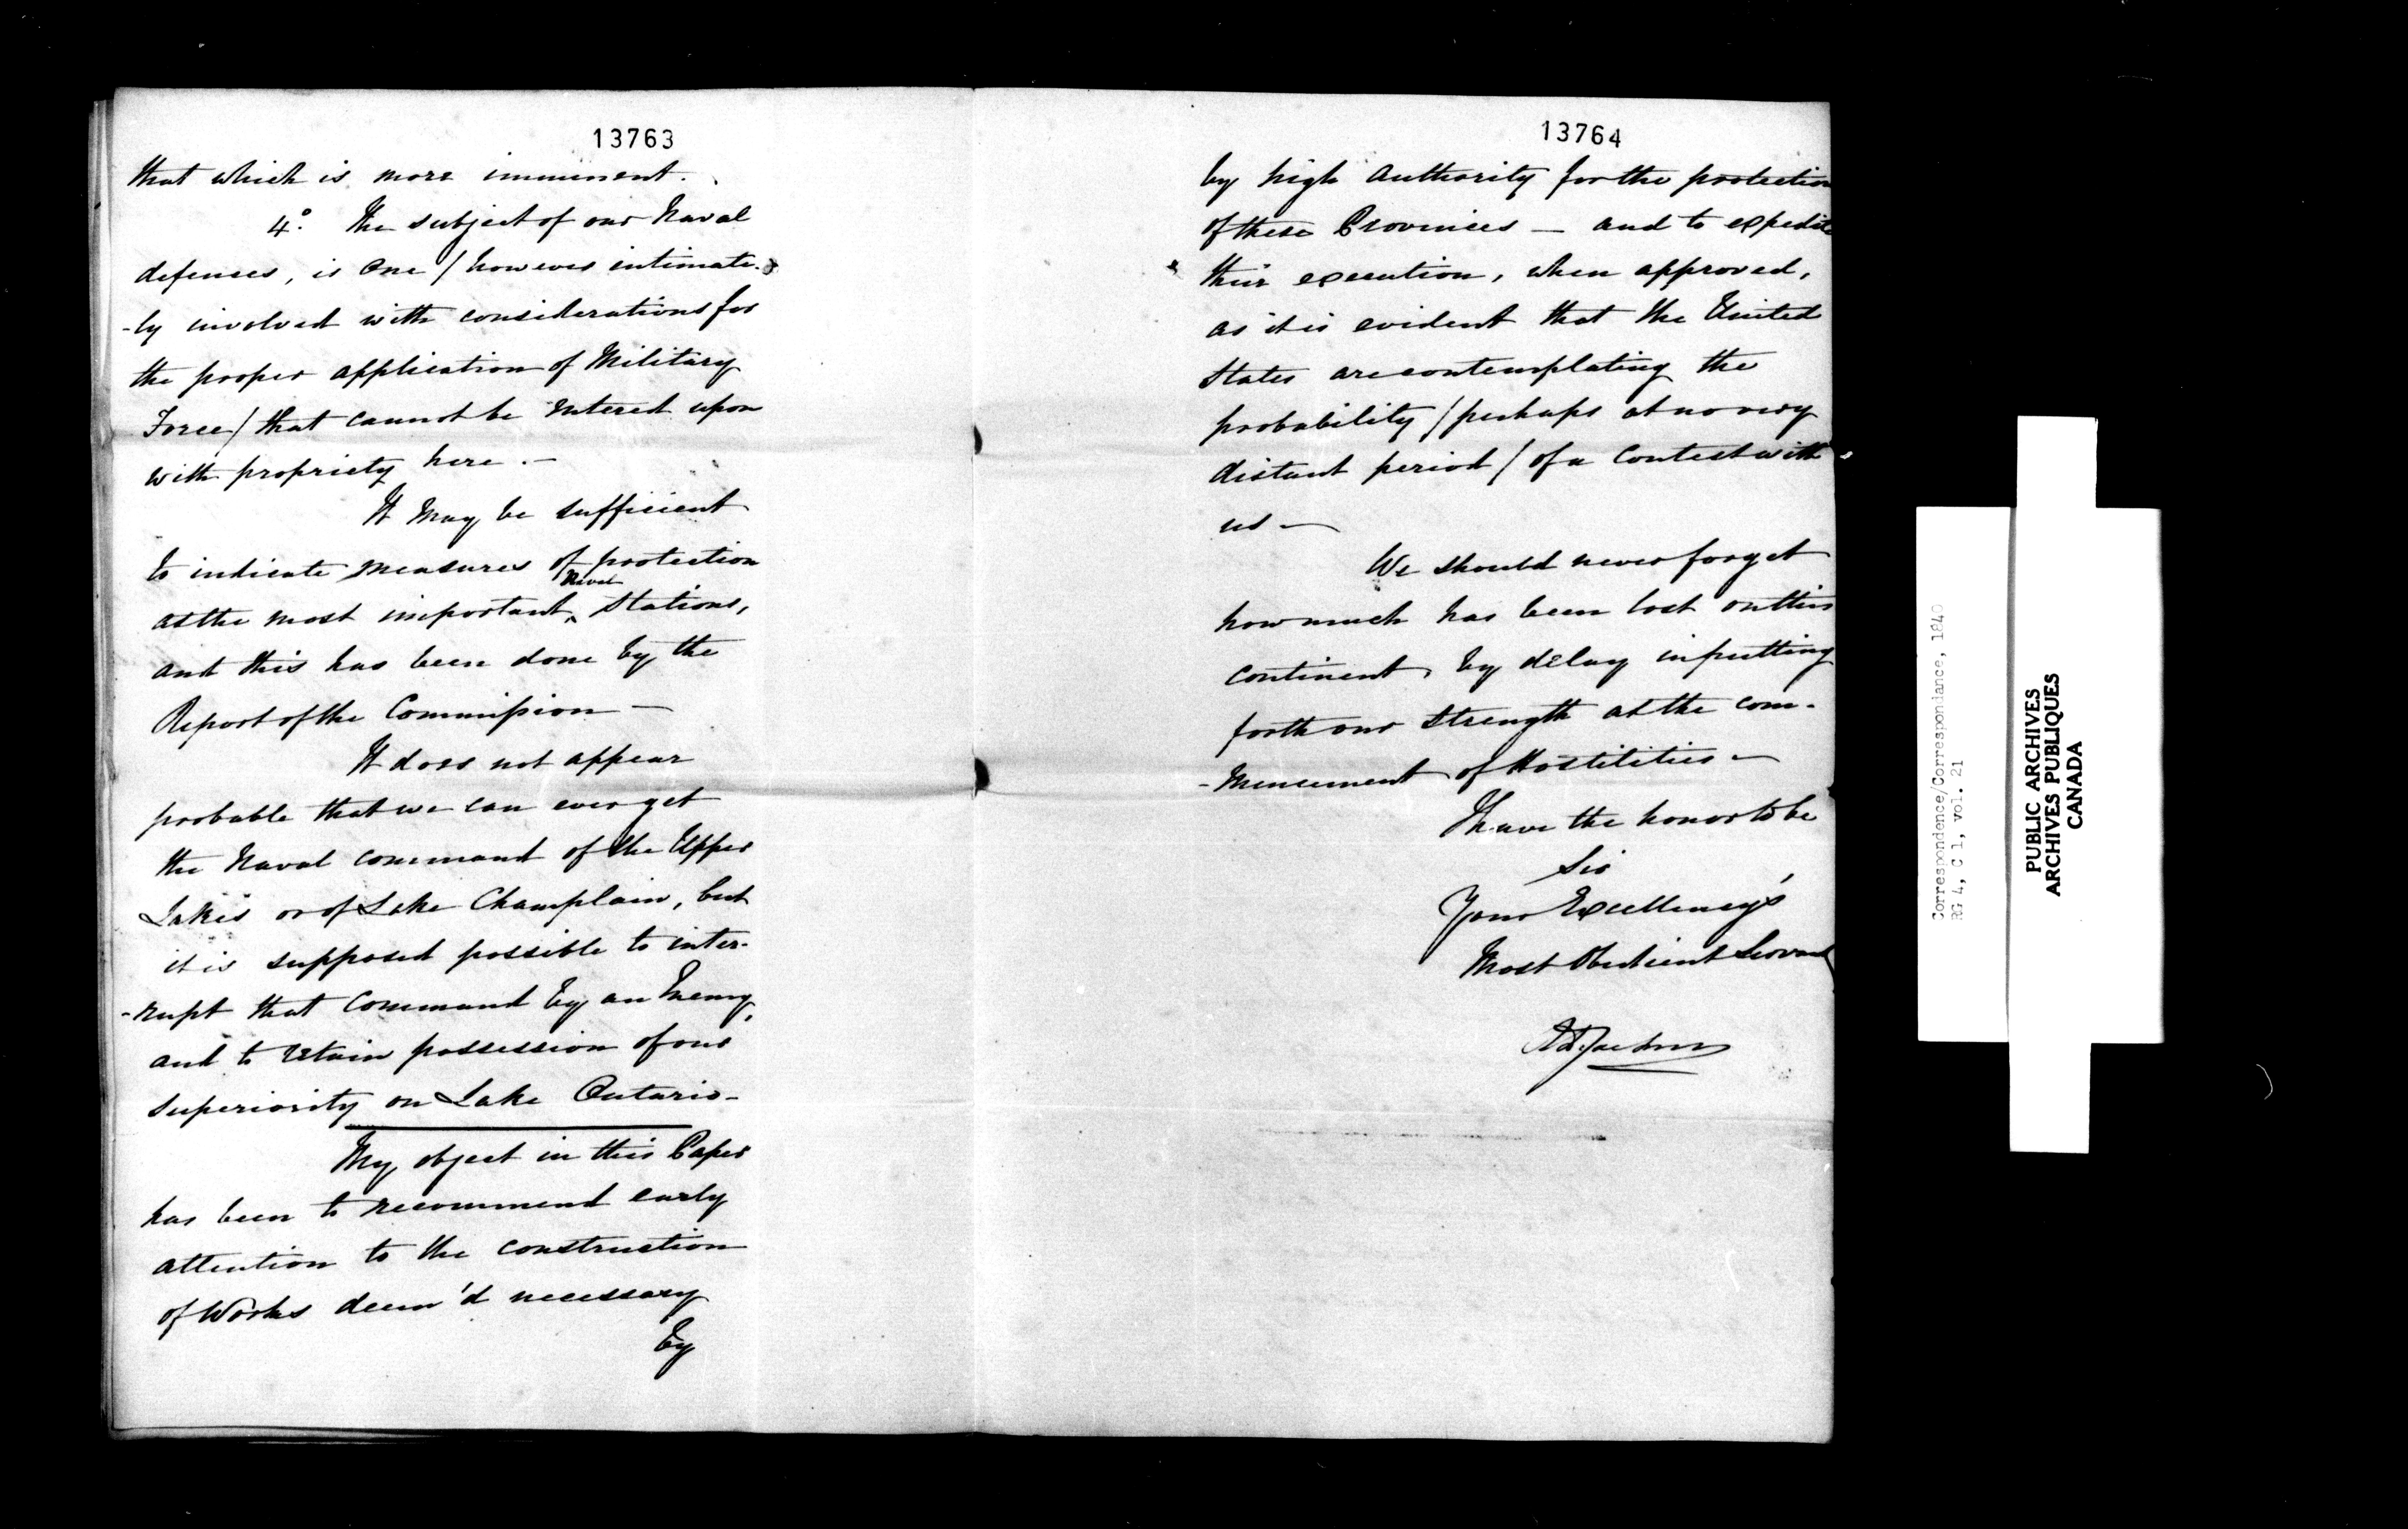 13763
that which is more imminent.
4°. The subject of our Naval
defenses, is one / however intimate-
-ly involved with considerations for
the proper application of Military
Force / that cannot be entered upon
with propriety here. —
It may be sufficient
to indicate measures of protection
at the most important ‸ Naval Stations,
and this has been done by the
Report of the Commission —
It does not appear
probable that we can ever get
the Naval command of the Upper
Lakes or of Lake Champlain, but
it is supposed possible to inter-
-rupt that Command by an Enemy,
and to retain possession of our
superiority on Lake Ontario —
My object in this Paper
has been to recommend early
attention to the construction
of Works deem'd necessary
by
13764
by high Authority for the protection
of these Provinces — and to expedite
their execution, when approved,
as it is evident that the United
States are contemplating the
probability / perhaps at no very
distant period / of a Contest with
us —
We should never forget
how much has been lost on this
continent by delay in putting
forth our Strength at the com-
-mencement of Hostilities —
I have the honor to be
Sir
Your Excellency's
Most Obedient Servant
Correspondence/Correspondance, 1840
RG 4, C 1, vol. 21
PUBLIC ARCHIVES
ARCHIVES PUBLIQUES
CANADA